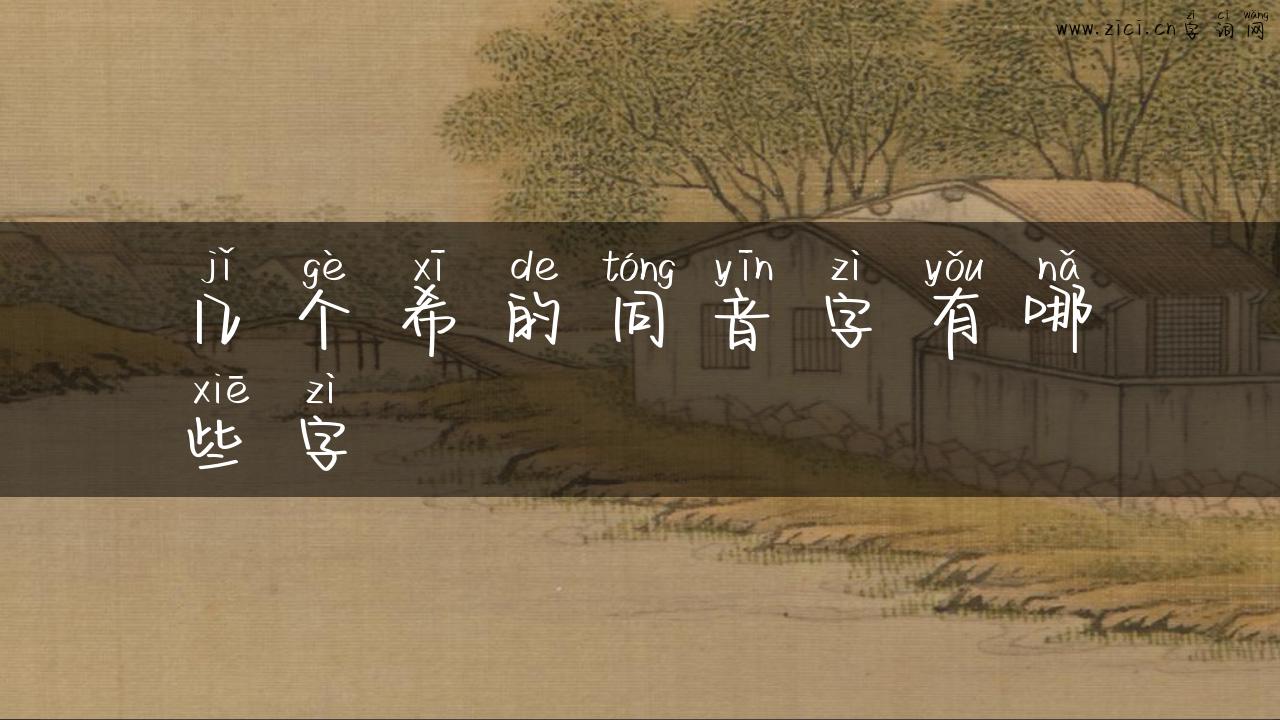 www.zici.cn字词网
zì cí wǎng
jǐ gè xī de tóng yīn zì yǒu nǎ
几个希的同音字有哪
xiē zì
些字